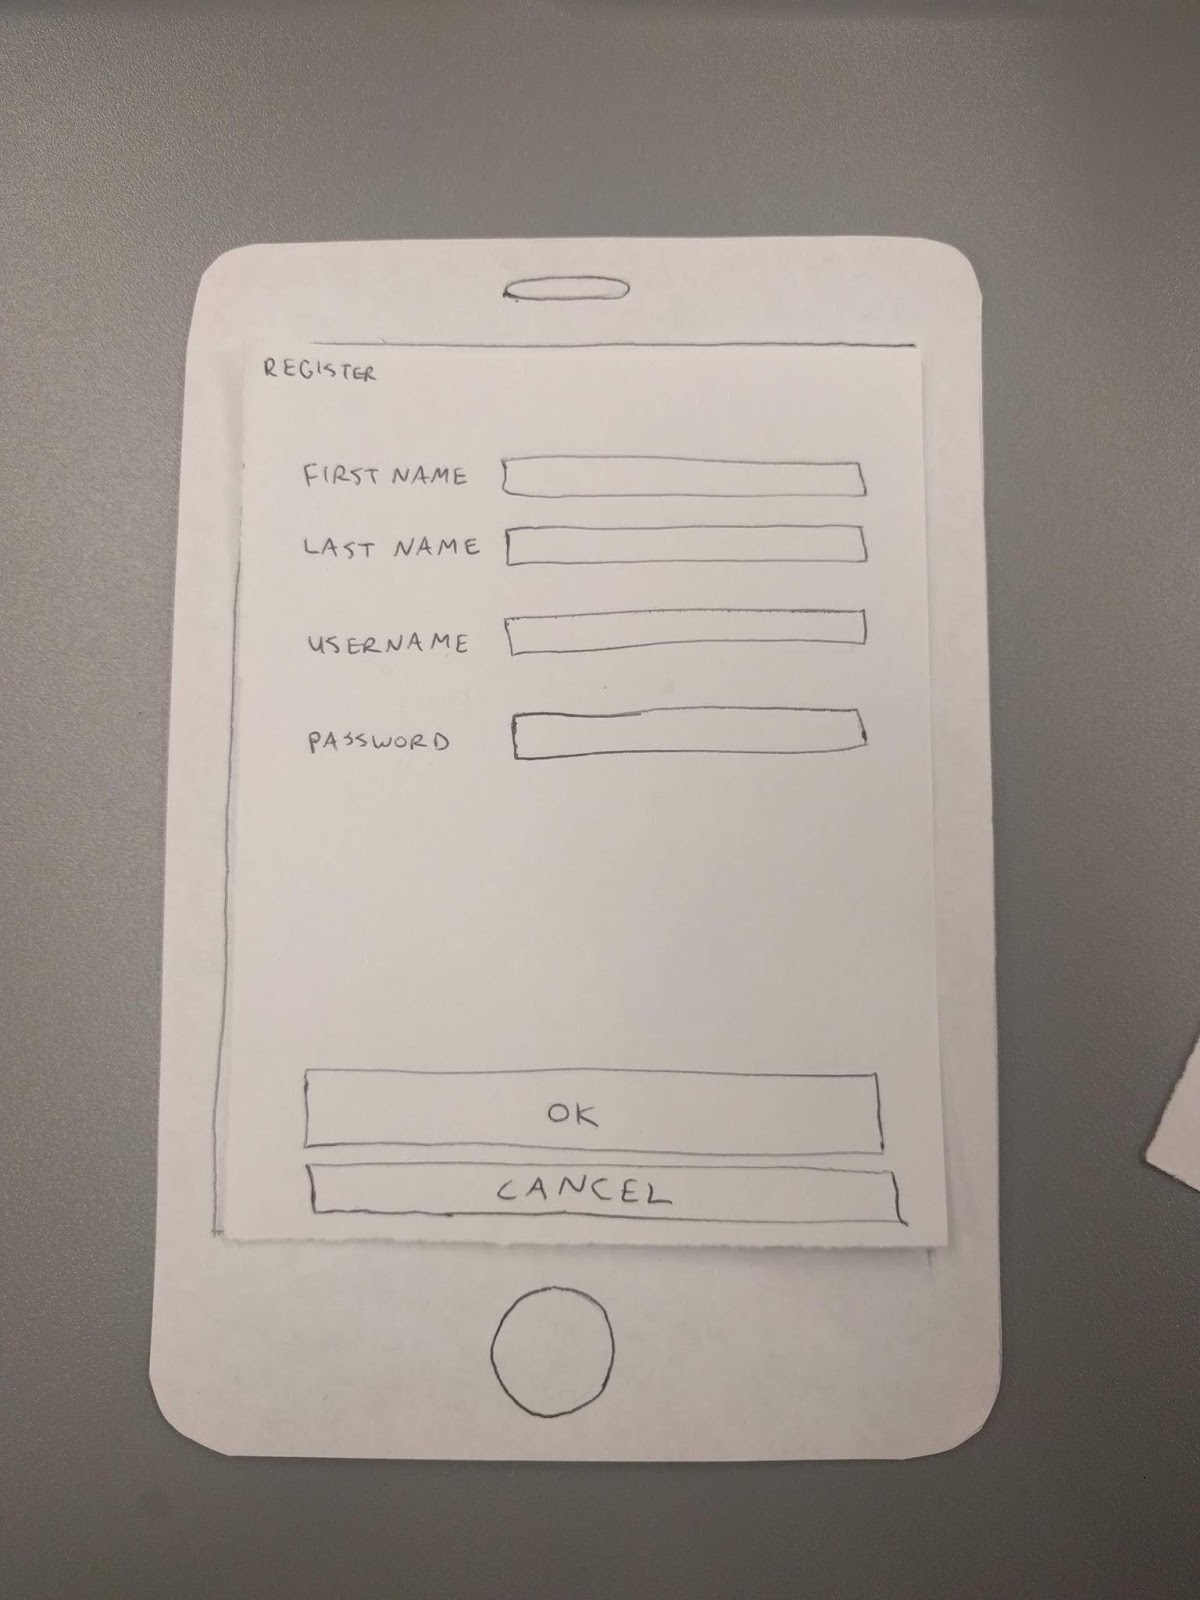 REGISTER
FIRST NAME
LAST NAME
USERNAME
PASSWORD
OK
CANCEL